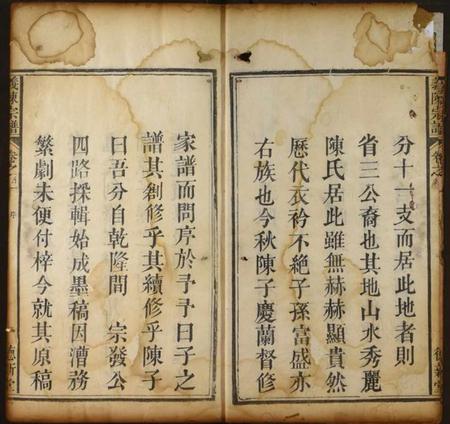 分十一支而居此地者則
省三公裔也其地山水秀麗
陳氏居此雖無赫赫顯貴然
歷代衣衿不絕子孫富盛亦
右族也今秋陳子慶蘭督修
家譜而問序於予予曰子之
譜其創修乎其續修乎陳子
曰吾分自乾隆間 宗發公
四路採輯始成墨稿因漕務
繁劇未便付梓今就其原稿
義陳宗譜
卷之
德新堂